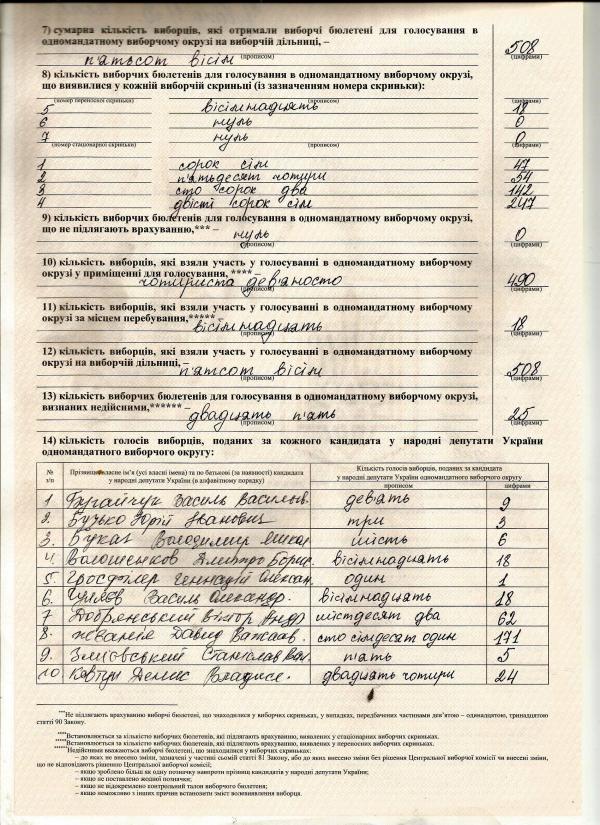 7) сумарна кількість виборців, які отримали виборчі бюлетені для голосування в
одномандатному виборчому окрузі на виборчій дільниці, – 508
п'ятьсот вісім
(прописом) (цифрами)
8) кількість виборчих бюлетенів для голосування в одномандатному виборчому окрузі,
що виявилися у кожній виборчій скриньці (із зазначенням номера скриньки):
(номер переносної скриньки) (прописом) (цифрами)
5 вісімнадцять 18
6 нуль 0
7 нуль 0
(номер стаціонарної скриньки) (прописом) (цифрами)
1 сорок сім 47
2 п'ятьдесят чотири 54
3 сто сорок два 142
4 двісті сорок сім 247
9) кількість виборчих бюлетенів для голосування в одномандатному виборчому окрузі,
що не підлягають врахуванню,*** –
нуль 0
(прописом) (цифрами)
10) кількість виборців, які взяли участь у голосуванні в одномандатному виборчому
окрузі у приміщенні для голосування, **** –
чотириста дев'яносто 490
(прописом) (цифрами)
11) кількість виборців, які взяли участь у голосуванні в одномандатному виборчому
окрузі за місцем перебування,***** –
вісімнадцять 18
(прописом) (цифрами)
12) кількість виборців, які взяли участь у голосуванні в одномандатному виборчому
окрузі на виборчій дільниці, –
п'ятсот вісім 508
(прописом) (цифрами)
13) кількість виборчих бюлетенів для голосування в одномандатному виборчому окрузі,
визнаних недійсними,****** –
двадцять п'ять 25
(прописом) (цифрами)
14) кількість голосів виборців, поданих за кожного кандидата у народні депутати України
одномандатного виборчого округу:
№ з/п
Прізвище, власне ім'я (усі власні імена) та по батькові (за наявності) кандидата
у народні депутати України (в алфавітному порядку)
Кількість голосів виборців, поданих за кандидата
у народні депутати України одномандатного виборчого округу
прописом цифрами
1. Василь дев'ять 9
2. Бучько Юрій Іванович три 3
3. Володимир шість 6
4. Волошенков Дмитро Борис. вісімнадцять 18
5. Геннадій один 1
6. Гуляєв Василь Олександр. вісімнадцять 18
7 Добрянський Віктор Андр шістдесят два 62
8. Жванія Давид сто сімдесят один 171
9. Зміївський Станіслав п'ять 5
10. Ковтун Денис Владисл. двадцять чотири 24
***Не підлягають врахуванню виборчі бюлетені, що знаходилися у виборчих скриньках, у випадках, передбачених частинами дев'ятою – одинадцятою, тринадцятою
статті 90 Закону.
****Встановлюється за кількістю виборчих бюлетенів, які підлягають врахуванню, виявлених у стаціонарних виборчих скриньках.
*****Встановлюється за кількістю виборчих бюлетенів, які підлягають врахуванню, виявлених у переносних виборчих скриньках.
******Недійсними вважаються виборчі бюлетені, що знаходилися у виборчих скриньках:
– до яких не внесено зміни, зазначені у частині сьомій статті 81 Закону, або до яких внесено зміни без рішення Центральної виборчої комісії чи внесені зміни,
що не відповідають рішенню Центральної виборчої комісії;
– якщо зроблено більш як одну позначку навпроти прізвищ кандидатів у народні депутати України;
– якщо не поставлено жодної позначки;
– якщо не відокремлено контрольний талон виборчого бюлетеня;
– якщо неможливо з інших причин встановити зміст волевиявлення виборця.